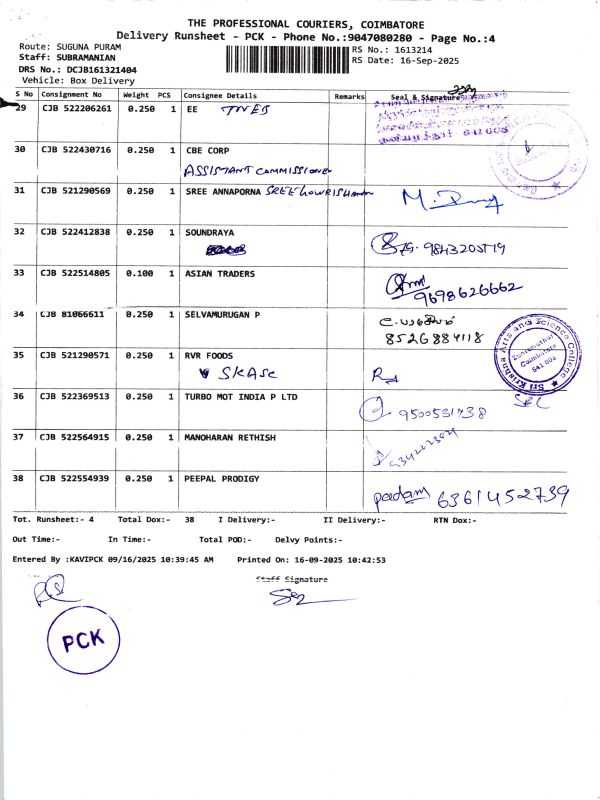 THE PROFESSIONAL COURIERS, COIMBATORE
Delivery Runsheet - PCK - Phone No.:9047080280 - Page No.:4
Route: SUGUNA PURAM
RS No.: 1613214
Staff: SUBRAMANIAN
RS Date: 16-Sep-2025
DRS No.: DCJB161321404
Vehicle: Box Delivery
S No Consignment No Weight PCS Consignee Details Remarks Seal & Signature
29 CJB 522206261 0.250 1 EE TNEB
30 CJB 522430716 0.250 1 CBE CORP
ASSISTANT COMMISSIONER
31 CJB 521290569 0.250 1 SREE ANNAPORNA SREE Gowrishankar
32 CJB 522412838 0.250 1 SOUNDRAYA
33 CJB 522514805 0.100 1 ASIAN TRADERS
9698626662
34 CJB 81066611 0.250 1 SELVAMURUGAN P
8526884118
Sri Krishna Arts and Science College
Coimbatore
641 008
35 CJB 521290571 0.250 1 RVR FOODS
SKASC
36 CJB 522369513 0.250 1 TURBO MOT INDIA P LTD
9500531738
37 CJB 522564915 0.250 1 MANOHARAN RETHISH
38 CJB 522554939 0.250 1 PEEPAL PRODIGY
padam 6361452739
Tot. Runsheet:- 4 Total Dox:- 38 I Delivery:- II Delivery:- RTN Dox:-
Out Time:- In Time:- Total POD:- Delvy Points:-
Entered By :KAVIPCK 09/16/2025 10:39:45 AM Printed On: 16-09-2025 10:42:53
Staff Signature
PCK